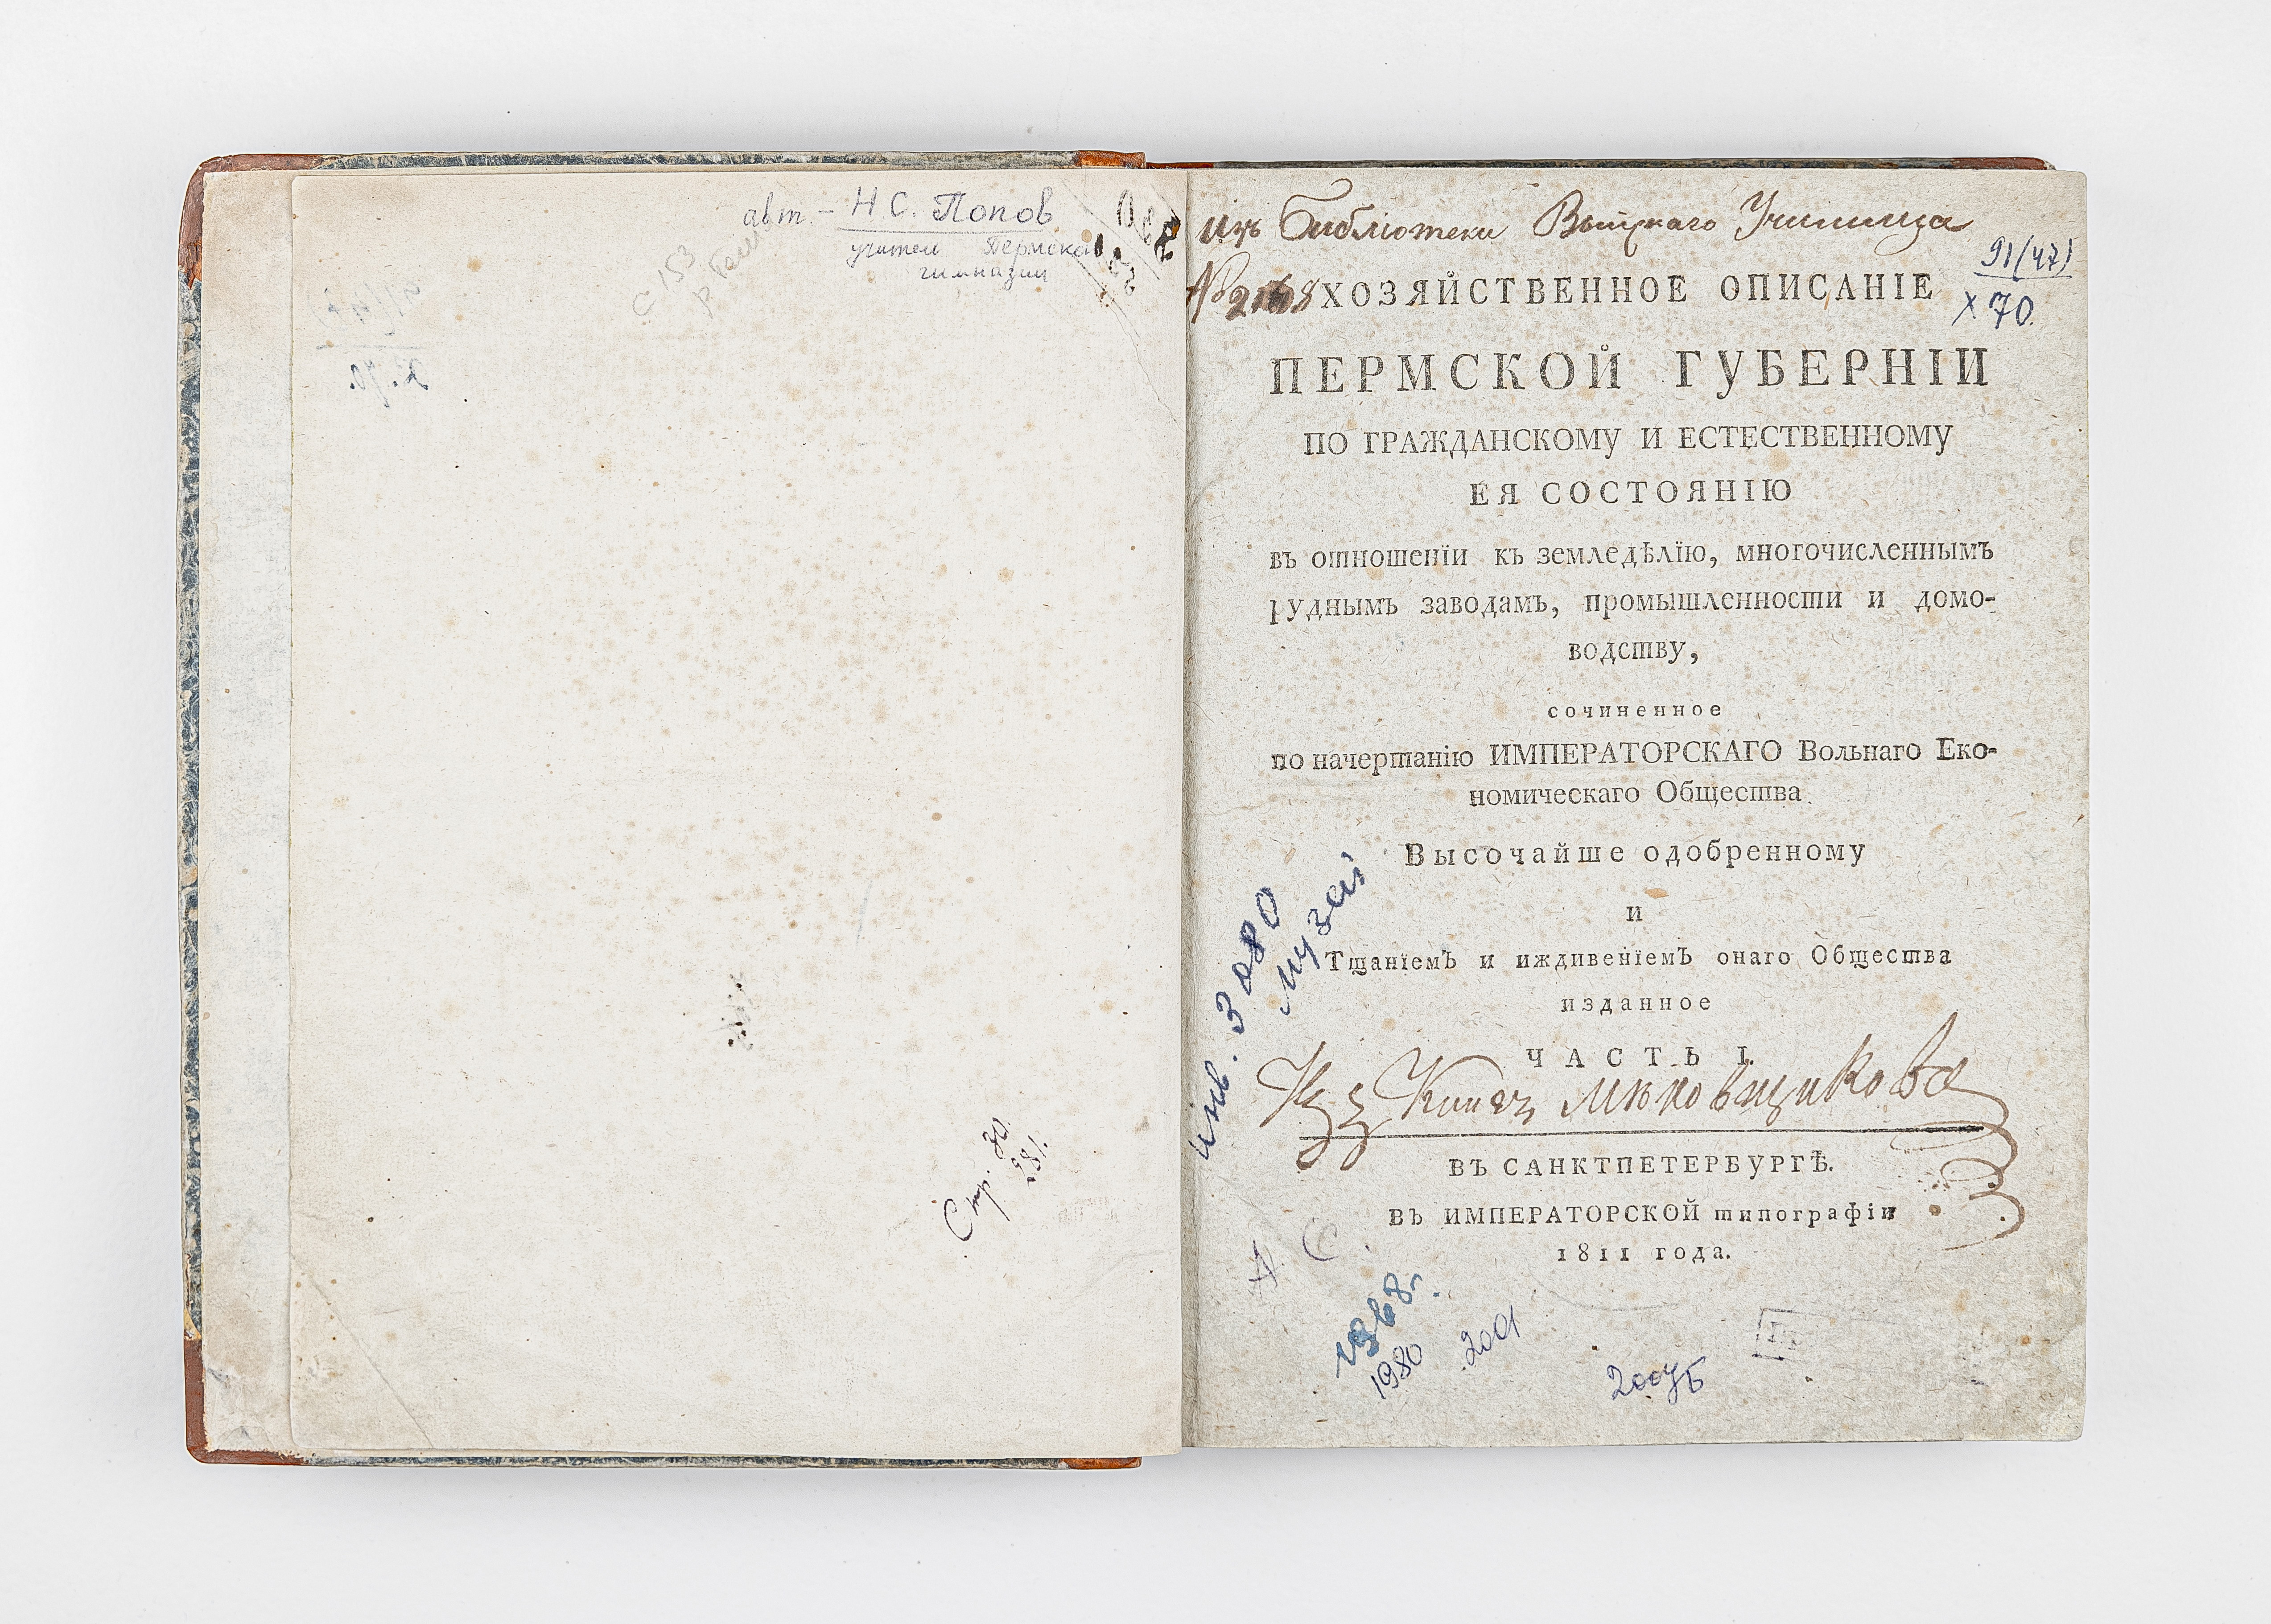 авт. – Н С. Попов
учитель Пермской
гимназии
С 153
Стр. 30.
281.
изъ Библіотеки Выйскаго Училища
№ 2168
91(47)
Х 70.
ХОЗЯЙСТВЕННОЕ ОПИСАНІЕ
ПЕРМСКОЙ ГУБЕРНІИ
ПО ГРАЖДАНСКОМУ И ЕСТЕСТВЕННОМУ
ЕЯ СОСТОЯНІЮ
въ отношенїи къ земледѣлїю, многочисленнымъ
руднымъ заводамъ, промышленности и домо-
водству,
сочиненное
по начертанію ИМПЕРАТОРСКАГО Вольнаго Еко-
номическаго Общества
Высочайше одобренному
и
Тщанїемъ и иждивенїемъ онаго Общества
изданное
ЧАСТЬ I.
Изъ Книгъ
ВЪ САНКТПЕТЕРБУРГѢ.
ВЪ ИМПЕРАТОРСКОЙ типографіи
1811 года.
инв. 3080
музей
1968г.
1980
2001
2007Б